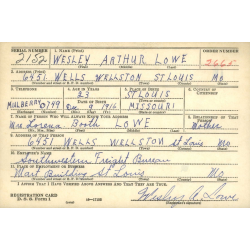 SERIAL NUMBER 1. NAME (Print) ORDER NUMBER
2132 WESLEY ARTHUR LOWE 2665
2. ADDRESS (Print)
6451 WELLS WELLSTON ST LOUIS MO
3. TELEPHONE 4. AGE IN YEARS 5. PLACE OF BIRTH 6. COUNTRY OF CITIZENSHIP
23 ST LOUIS
MULBERRY 0749 DATE OF BIRTH
Dec 9 1916 MISSOURI
7. NAME OF PERSON WHO WILL ALWAYS KNOW YOUR ADDRESS 8. RELATIONSHIP OF THAT PERSON
Mrs Lorena Booth LOWE Mother
9. ADDRESS OF THAT PERSON
6451 WELLS WELLSTON St Louis Mo
10. EMPLOYER'S NAME
Southwestern Freight Bureau
11. PLACE OF EMPLOYMENT OR BUSINESS
Mart Building St Louis Mo
I AFFIRM THAT I HAVE VERIFIED ABOVE ANSWERS AND THAT THEY ARE TRUE.
REGISTRATION CARD
D. S. S. Form 1 Wesley A Lowe